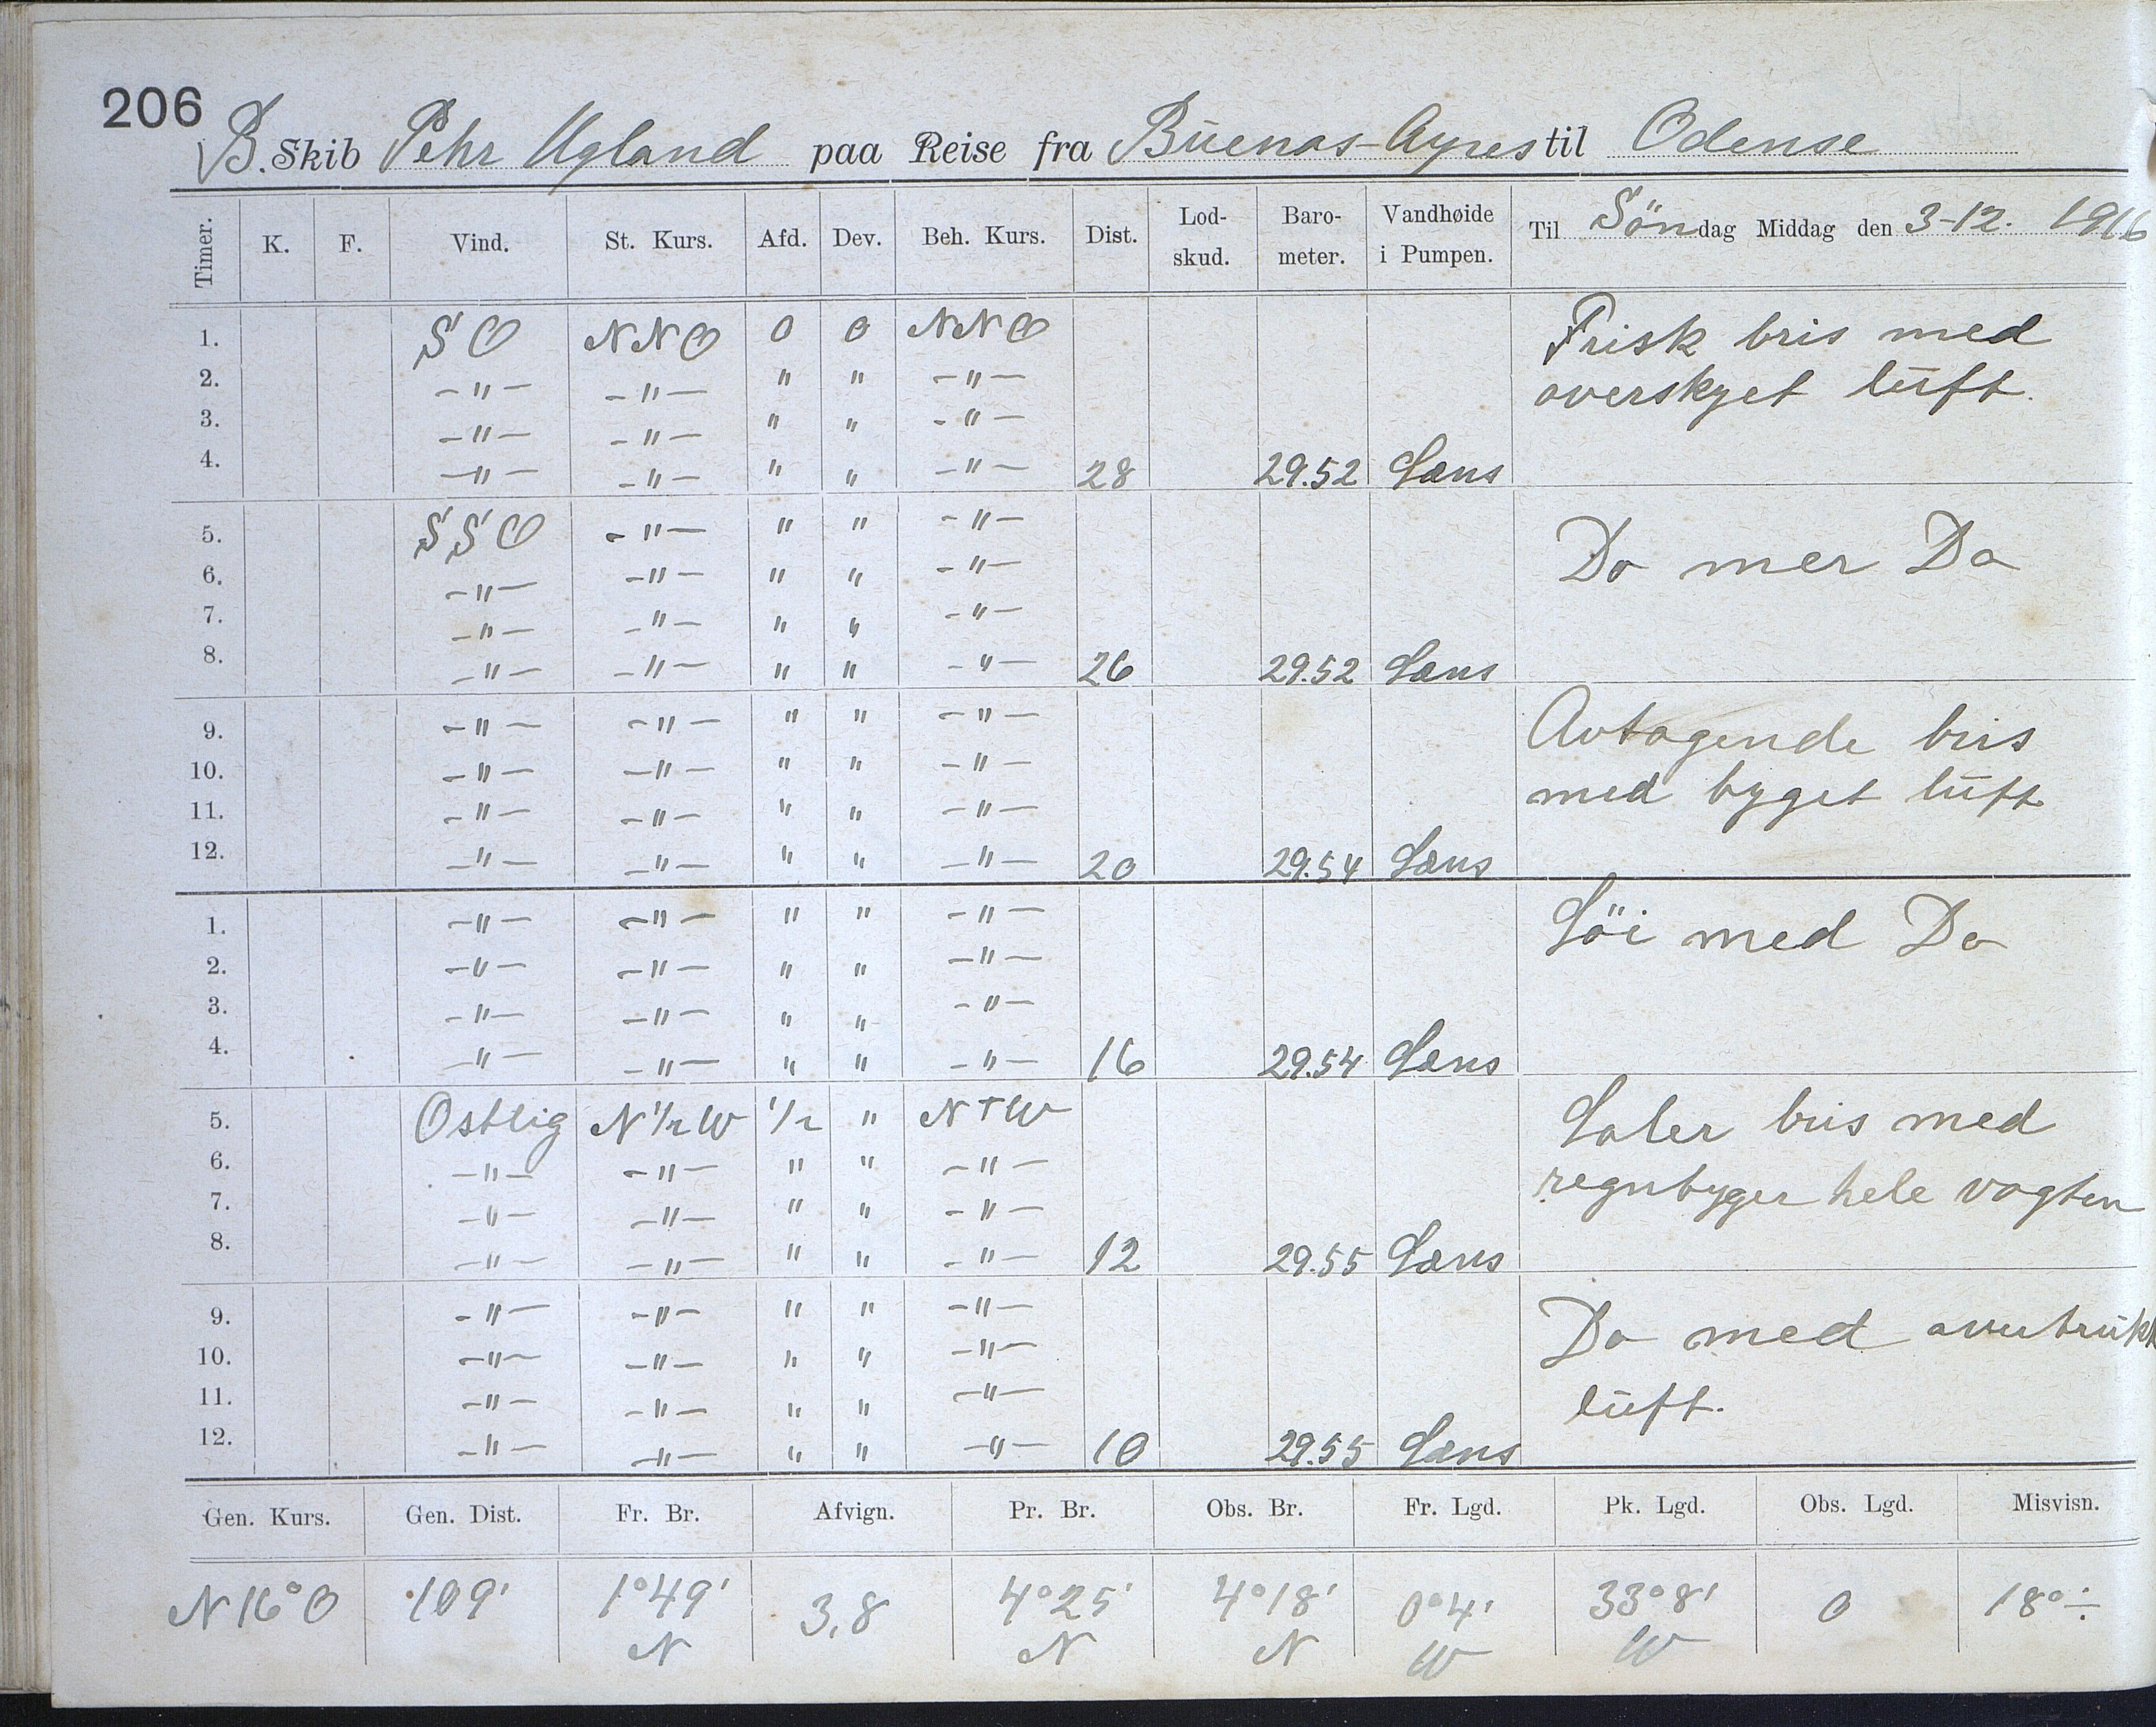 206
B. Skib Pehr Ugland paa Reise fra Buenos-Ayres til Odense
Timer. K. F. Vind. St. Kurs. Afd. Dev. Beh. Kurs. Dist. Lod-skud. Baro-meter. Vandhøide i Pumpen. Til Söndag Middag den 3-12. 1916
1. SO NNO 0 0 NNO Frisk bris med
2. -"- -"- " " -"- overskyet luft.
3. -"- -"- " " -"-
4. -"- -"- " " -"- 28 29.52 Læns
5. SSO -"- " " -"- Do mer Do
6. -"- -"- " " -"-
7. -"- -"- " " -"-
8. -"- -"- " " -"- 26 29.52 Læns
9. -"- -"- " " -"- Avtagende bris
10. -"- -"- " " -"- med byget luft
11. -"- -"- " " -"-
12. -"- -"- " " -"- 20 29.54 Læns
1. -"- -"- " " -"- Löi med Do
2. -"- -"- " " -"-
3. -"- -"- " " -"-
4. -"- -"- " " -"- 16 29.54 Læns
5. Ostlig N 1/2 W 1/2 " N t W Laber bris med
6. -"- -"- " " -"- regnbyger hele vagten
7. -"- -"- " " -"-
8. -"- -"- " " -"- 12 29.55 Læns
9. -"- -"- " " -"- Do med
10. -"- -"- " " -"-
11. -"- -"- " " -"- luft.
12. -"- -"- " " -"- 10 29.55 Læns
Gen. Kurs. Gen. Dist. Fr. Br. Afvign. Pr. Br. Obs. Br. Fr. Lgd. Pk. Lgd. Obs. Lgd. Misvisn.
N 16° O 109' 1°49' 3,8 4°25' 4°18' 0°4' 33°8' 0 18° ÷
N N N W W